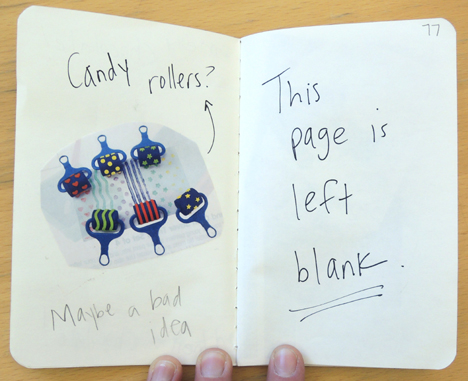 Candy rollers?
Maybe a bad
idea
77
This
page is
left
blank.